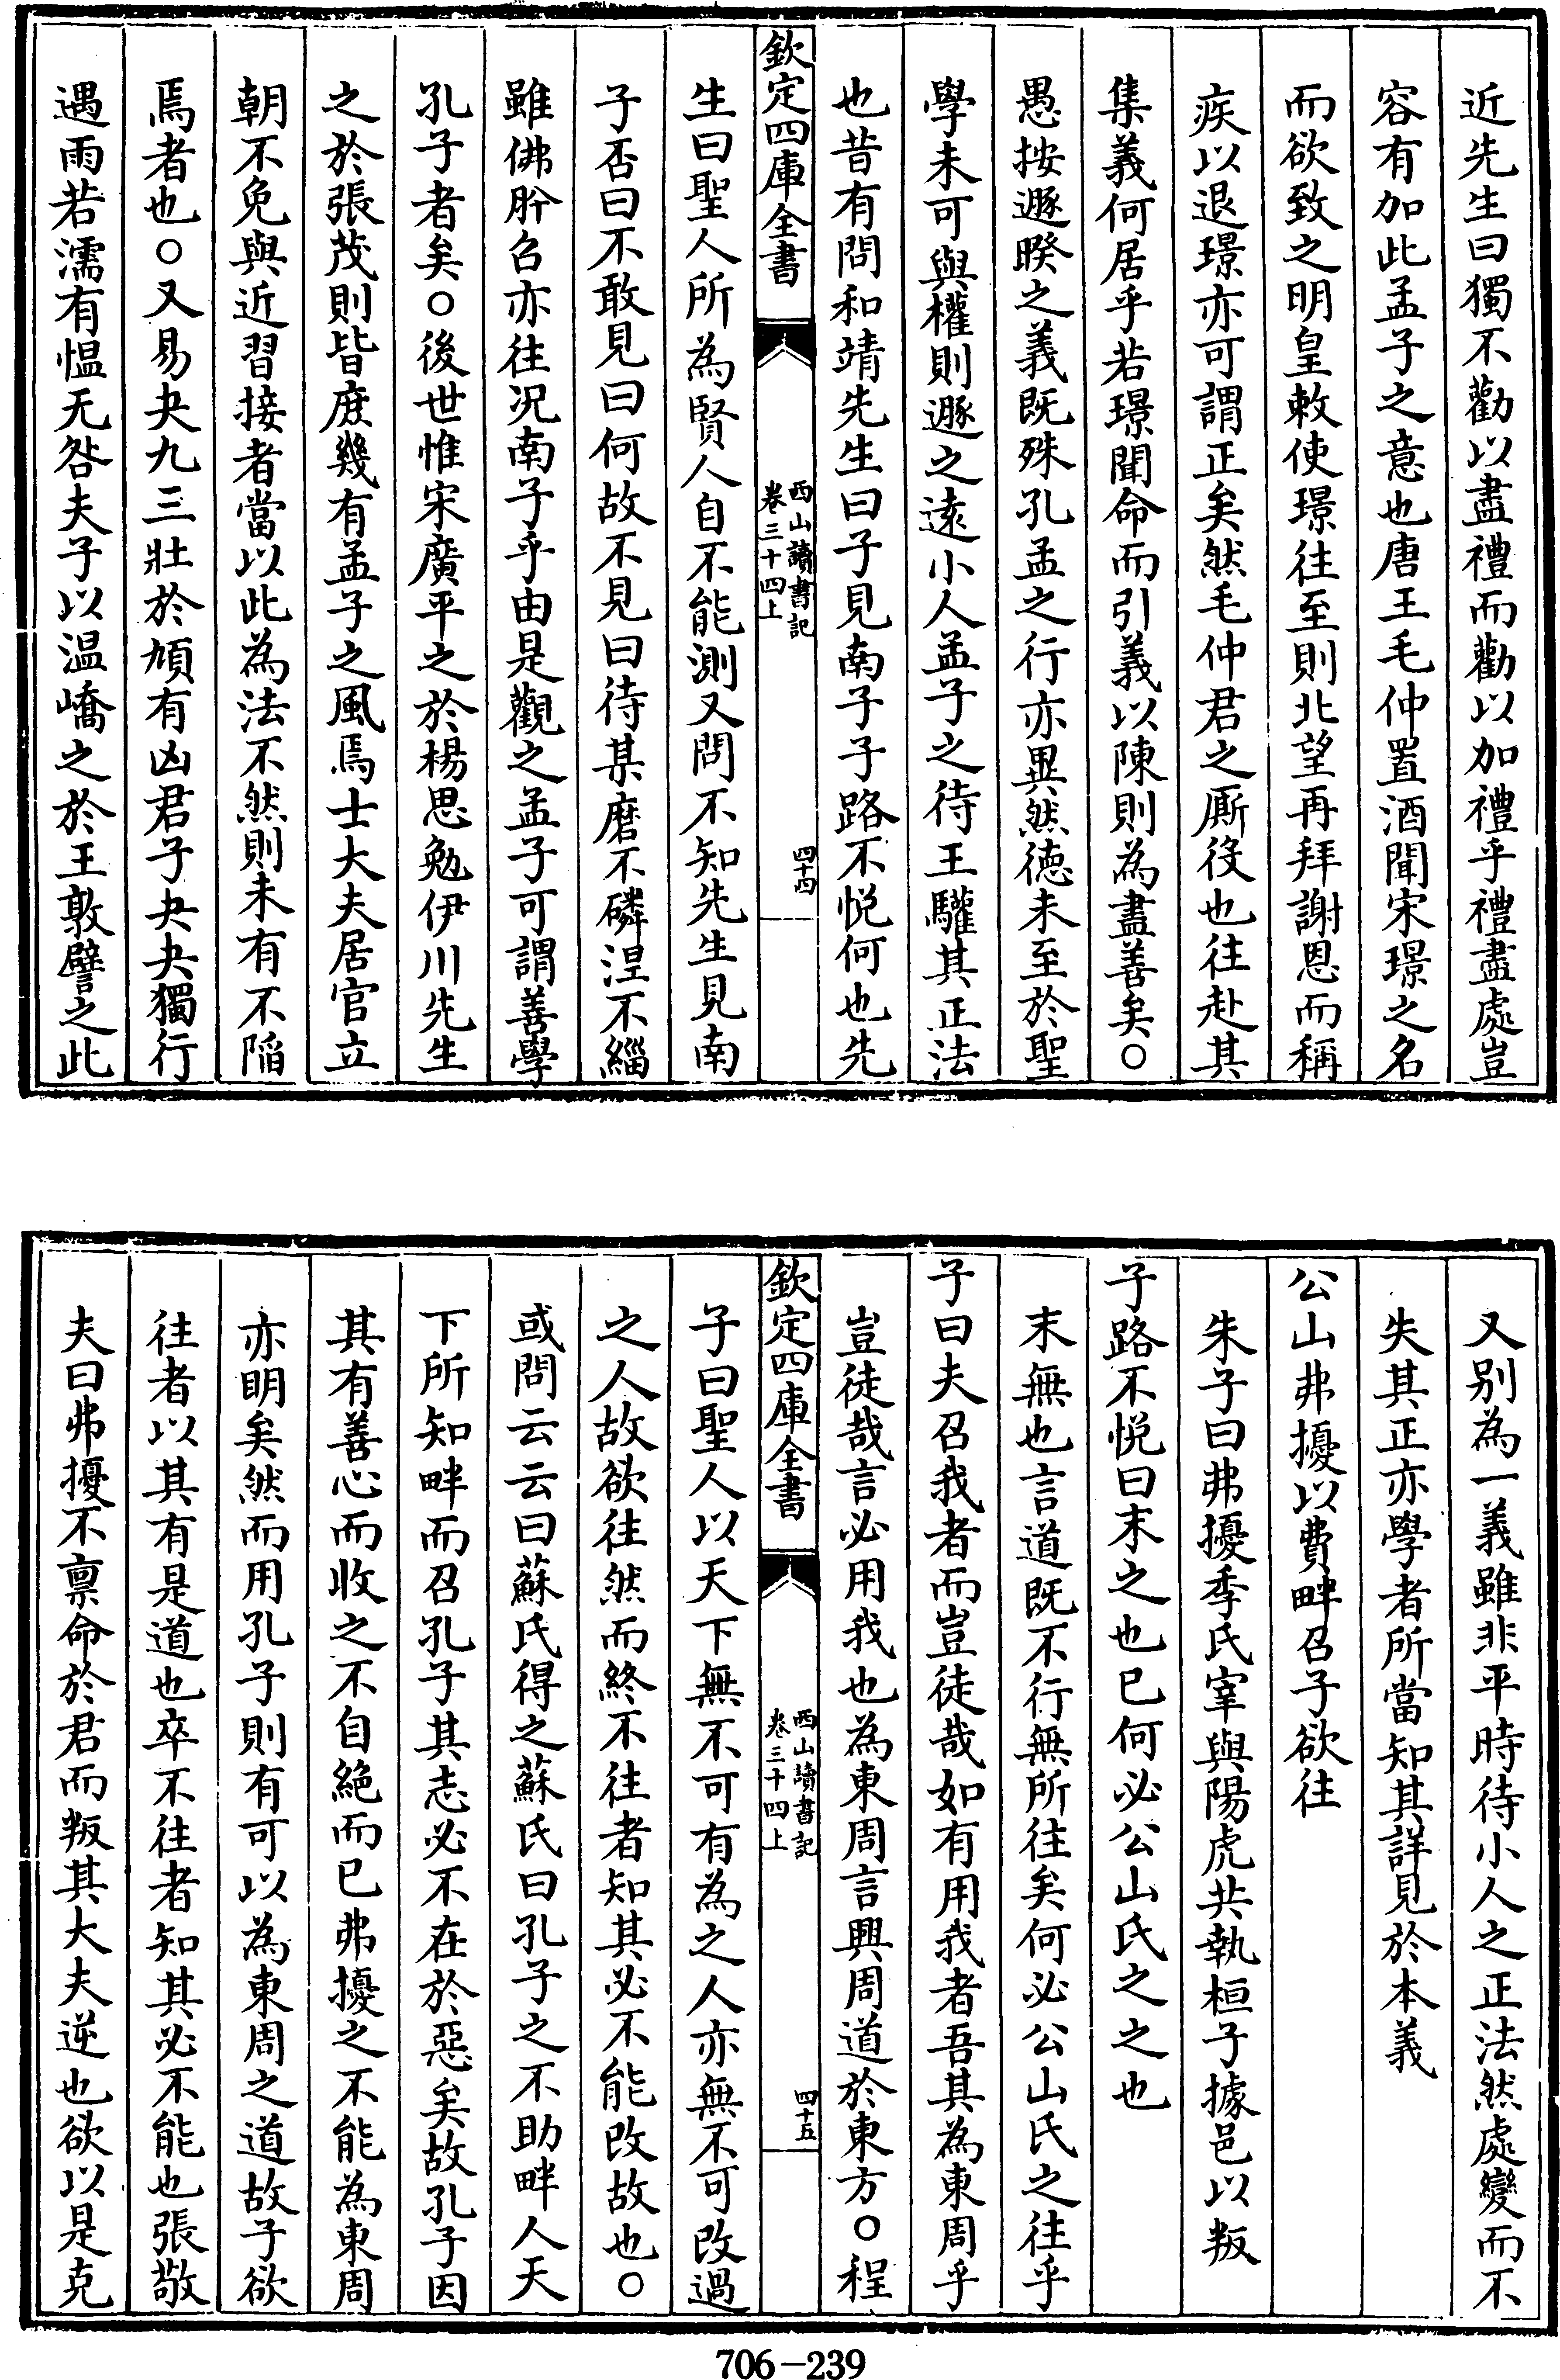 近先生曰獨不勸以盡禮而勸以加禮乎禮盡處豈
容有加此孟子之意也唐王毛仲置酒聞宋璟之名
而欲致之明皇敕使璟往至則北望再拜謝恩而稱
疾以退璟亦可謂正矣然毛仲君之厮役也往赴其
集義何居乎若璟聞命而引義以陳則為盡善矣○
愚按遯睽之義既殊孔孟之行亦異然徳未至於聖
學未可與權則遯之遠小人孟子之待王驩其正法
也昔有問和靖先生曰子見南子子路不悦何也先
欽定四庫全書
西山讀書記
卷三十四上
四十四
生曰聖人所為賢人自不能測又問不知先生見南
子否曰不敢見曰何故不見曰待某磨不磷涅不緇
雖佛肸召亦往况南子乎由是觀之孟子可謂善學
孔子者矣○後世惟宋廣平之於楊思勉伊川先生
之於張茂則皆庶幾有孟子之風焉士大夫居官立
朝不免與近習接者當以此為法不然則未有不陷
焉者也○又易夬九三壯於頄有凶君子夬夬獨行
遇雨若濡有愠无咎夫子以温嶠之於王敦譬之此
又别為一義雖非平時待小人之正法然處變而不
失其正亦學者所當知其詳見於本義
公山弗擾以費畔召子欲往
朱子曰弗擾季氏宰與陽虎共執桓子據邑以叛
子路不悦曰末之也已何必公山氏之之也
末無也言道既不行無所往矣何必公山氏之往乎
子曰夫召我者而豈徒哉如有用我者吾其為東周乎
豈徒哉言必用我也為東周言興周道於東方○程
欽定四庫全書
西山讀書記
卷三十四上
四十五
子曰聖人以天下無不可有為之人亦無不可改過
之人故欲往然而終不往者知其必不能改故也○
或問云云曰蘇氏得之蘇氏曰孔子之不助畔人天
下所知畔而召孔子其志必不在於惡矣故孔子因
其有善心而收之不自絶而已弗擾之不能為東周
亦明矣然而用孔子則有可以為東周之道故子欲
往者以其有是道也卒不往者知其必不能也張敬
夫曰弗擾不禀命於君而叛其大夫逆也欲以是克
706-239